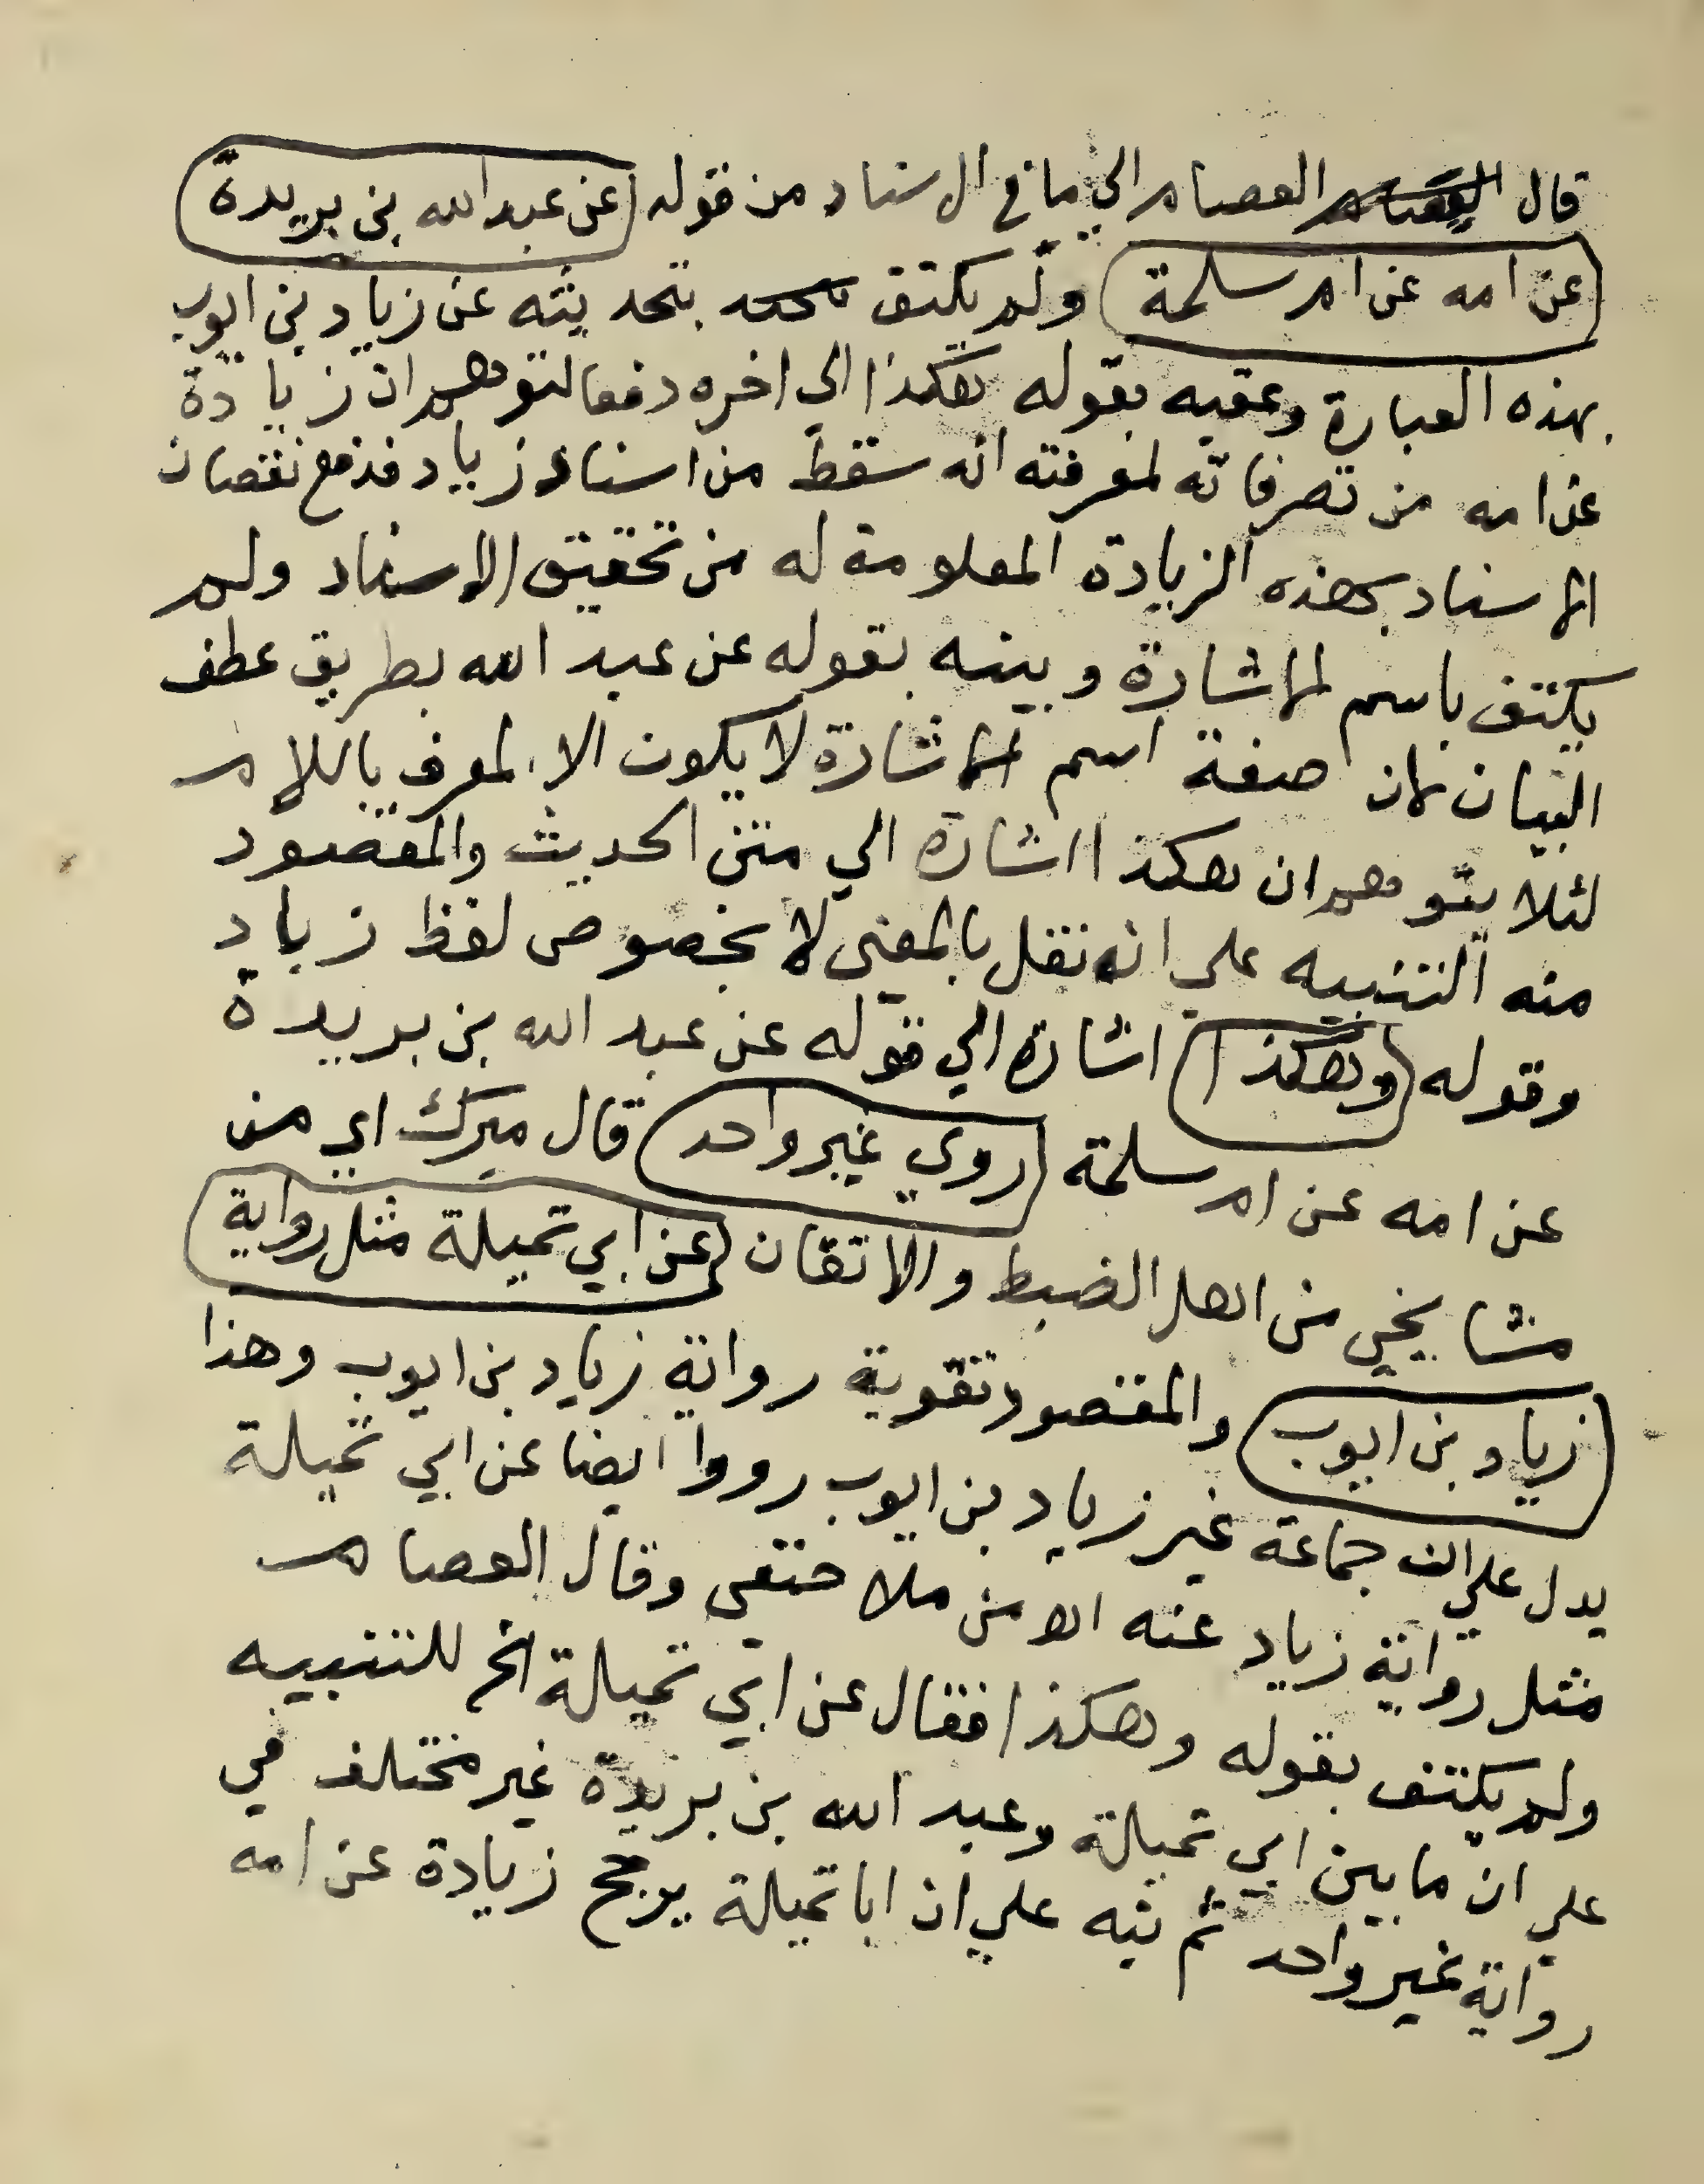 قال العصام الي ما في الاسناد من قوله عن عبد الله بن بريدة
عن امه عن ام سلمة ولم يكتف بتحديثه عن زياد بن ايوب
بهذه العبارة وعقبه بقوله هكذا الي اخره دفعا لتوهم ان زيادة
عن امه من تصرفاته لمعرفته انه سقط من اسناد زياد فدفع نقصان
الاسناد بهذه الزيادة المعلومة له من تحقيق الاسناد ولم
يكتف باسم الاشارة وبينه بقوله عن عبد الله بطريق عطف
البيان لان صفة اسم الاشارة لا يكون الا المعرف باللام
لئلا يتوهم ان هكذا اشارة الي متن الحديث والمقصود
منه التنبيه علي انه نقل بالمعني لا بخصوص لفظ زياد
وقوله وهكذا اشارة الي قوله عن عبد الله بن بريدة
عن امه عن ام سلمة روي غير واحد قال ميرك اي من
مشايخي من اهل الضبط والاتقان عن ابي تميلة مثل رواية
زياد بن ايوب والمقصود تقوية رواية زياد بن ايوب وهذا
يدل علي ان جماعة غير زياد بن ايوب رووا ايضا عن ابي تميلة
مثل رواية زياد عنه الا من ملا حنفي وقال العصام
ولم يكتف بقوله وهكذا فقال عن ابي تميلة الخ للتنبيه
علي ان ما بين ابي تميلة وعبد الله بن بريدة غير مختلف في
رواية غير واحد ثم نبه علي ان ابا تميلة يرجح زيادة عن امه